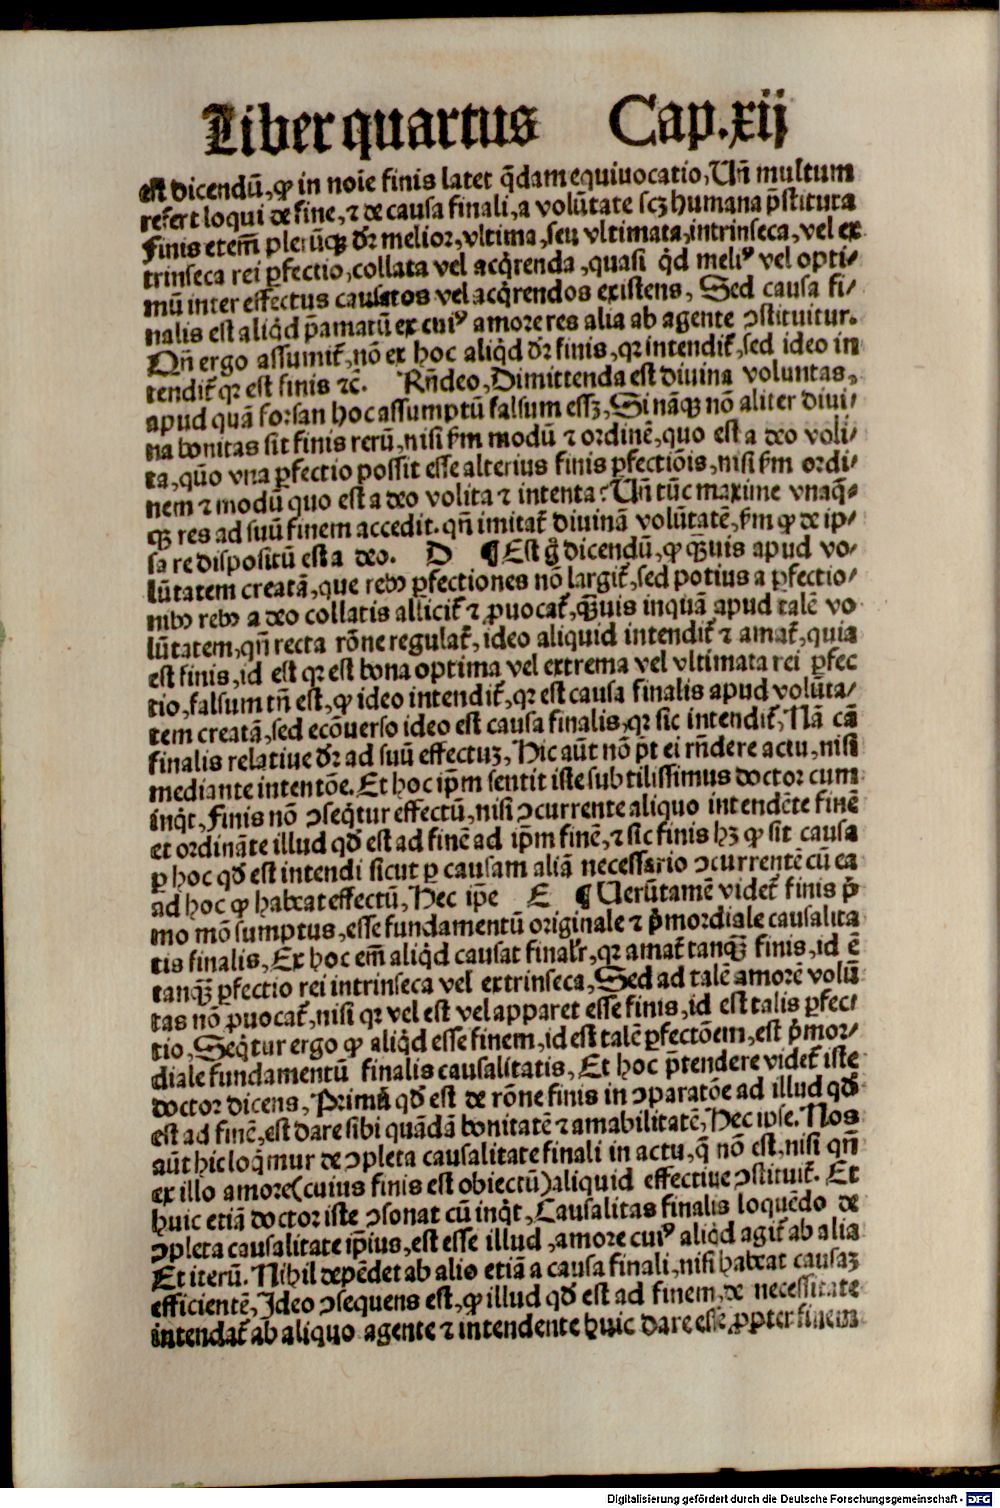 Liber quartus Cap.xij
est dicendū, ꝙ in noīe finis latet q̄dam equiuocatio, Uñ multum
refert loqui de fine, ⁊ de causa finali, a volūtate scꝫ humana p̄stituta
Finis etem̄ plerūqꝫ dr̄ melior, vltima, seu vltimata, intrinseca, vel ex
trinseca rei ꝑfectio, collata vel acq̇renda, quasi q̇d meliꝰ vel opti⸗
mū inter effectus causatos vel acq̇rendos existens, Sed causa fi⸗
nalis est aliq̇d p̄amatū ex cuiꝰ amore res alia ab agente ꝯstituitur.
Qñ ergo assumit᷑, nō ex hoc aliq̇d dr̄ finis, qꝛ intendit᷑, sed ideo in
tendit᷑ qꝛ est finis ⁊c̄. Rñdeo, Dimittenda est diuina voluntas,
apud quā forsan hoc assumptū falsum essꝫ, Si nāqꝫ nō aliter diui⸗
na bonitas sit finis rerū, nisi ẜm modū ⁊ ordinē, quo est a deo voli⸗
ta, quō vna ꝑfectio possit esse alterius finis ꝑfectiōis, nisi ẜm ordi⸗
nem ⁊ modū quo est a deo volita ⁊ intenta: Uñ tūc maxime vnaq̄⸗
qꝫ res ad suū finem accedit. qñ imitat᷑ diuinā volūtatē, ẜm ꝙ de ip⸗
sa re dispositū est a deo. D ¶ Est g̊ dicendū, ꝙ qꝫuis apud vo⸗
lūtatem creatā, que reꝝ ꝑfectiones nō largit᷑, sed potius a ꝑfectio⸗
nibꝰ reꝝ a deo collatis allicit᷑ ⁊ ꝓuocat᷑, qꝫuis inquā apud talē vo
lūtatem, qñ recta rōne regulat᷑, ideo aliquid intendit᷑ ⁊ amat᷑, quia
est finis, id est qꝛ est bona optima vel extrema vel vltimata rei ꝑfec
tio, falsum tñ est, ꝙ ideo intendit᷑, qꝛ est causa finalis apud volūta⸗
tem creatā, sed ecōuerso ideo est causa finalis, qꝛ sic intendit᷑, Nā cā
finalis relatiue dr̄ ad suū effectuꝫ, Hic aūt nō p̄t ei rñdere actu, nisi
mediante intentōe. Et hoc ip̄m sentit iste subtilissimus doctor cum
inq̇t, Finis nō ꝯseq̇tur effectū, nisi ꝯcurrente aliquo intendēte finē
et ordināte illud qd̄ est ad finē ad ip̄m finē, ⁊ sic finis hꝫ ꝙ sit causa
ꝑ hoc qd̄ est intendi sicut ꝑ causam aliā necessario ꝯcurrentē cū ea
ad hoc ꝙ habeat effectū, Hec ip̄e E ¶ Uerūtamē videt᷑ finis p̄
mo mō sumptus, esse fundamentū originale ⁊ ṗmordiale causalita
tis finalis, Ex hoc em̄ aliq̇d causat finalr̄, qꝛ amat᷑ tanqꝫ finis, id ē
tanqꝫ ꝑfectio rei intrinseca vel extrinseca, Sed ad talē amorē volū
tas nō ꝓuocat᷑, nisi qꝛ vel est vel apparet esse finis, id est talis ꝑfec⸗
tio, Seq̇tur ergo ꝙ aliq̇d esse finem, id est talē ꝑfectōem, est ṗmor⸗
diale fundamentū finalis causalitatis, Et hoc p̄tendere videt᷑ iste
doctor dicens, Primū qd̄ est de rōne finis in ꝯparatōe ad illud qd̄
est ad finē, est dare sibi quādā bonitatē ⁊ amabilitatē, Hec ipse. Nos
aūt hic loq̇mur de ꝯpleta causalitate finali in actu, q̄ nō est, nisi qñ
ex illo amore (cuius finis est obiectū) aliquid effectiue ꝯstituit᷑. Et
huic etiā doctor iste ꝯsonat cū inq̇t, Causalitas finalis loquēdo de
ꝯpleta causalitate ip̄ius, est esse illud, amore cuiꝰ aliq̇d agit᷑ ab alia
Et iterū. Nihil depēdet ab alio etiā a causa finali, nisi habeat causaꝫ
efficientē, Ideo ꝯsequens est, ꝙ illud qd̄ est ad finem, de necessitate
intendat᷑ ab aliquo agente ⁊ intendente huic dare esse ꝓpter finem
Digitalisierung gefördert durch die Deutsche Forschungsgemeinschaft - DFG